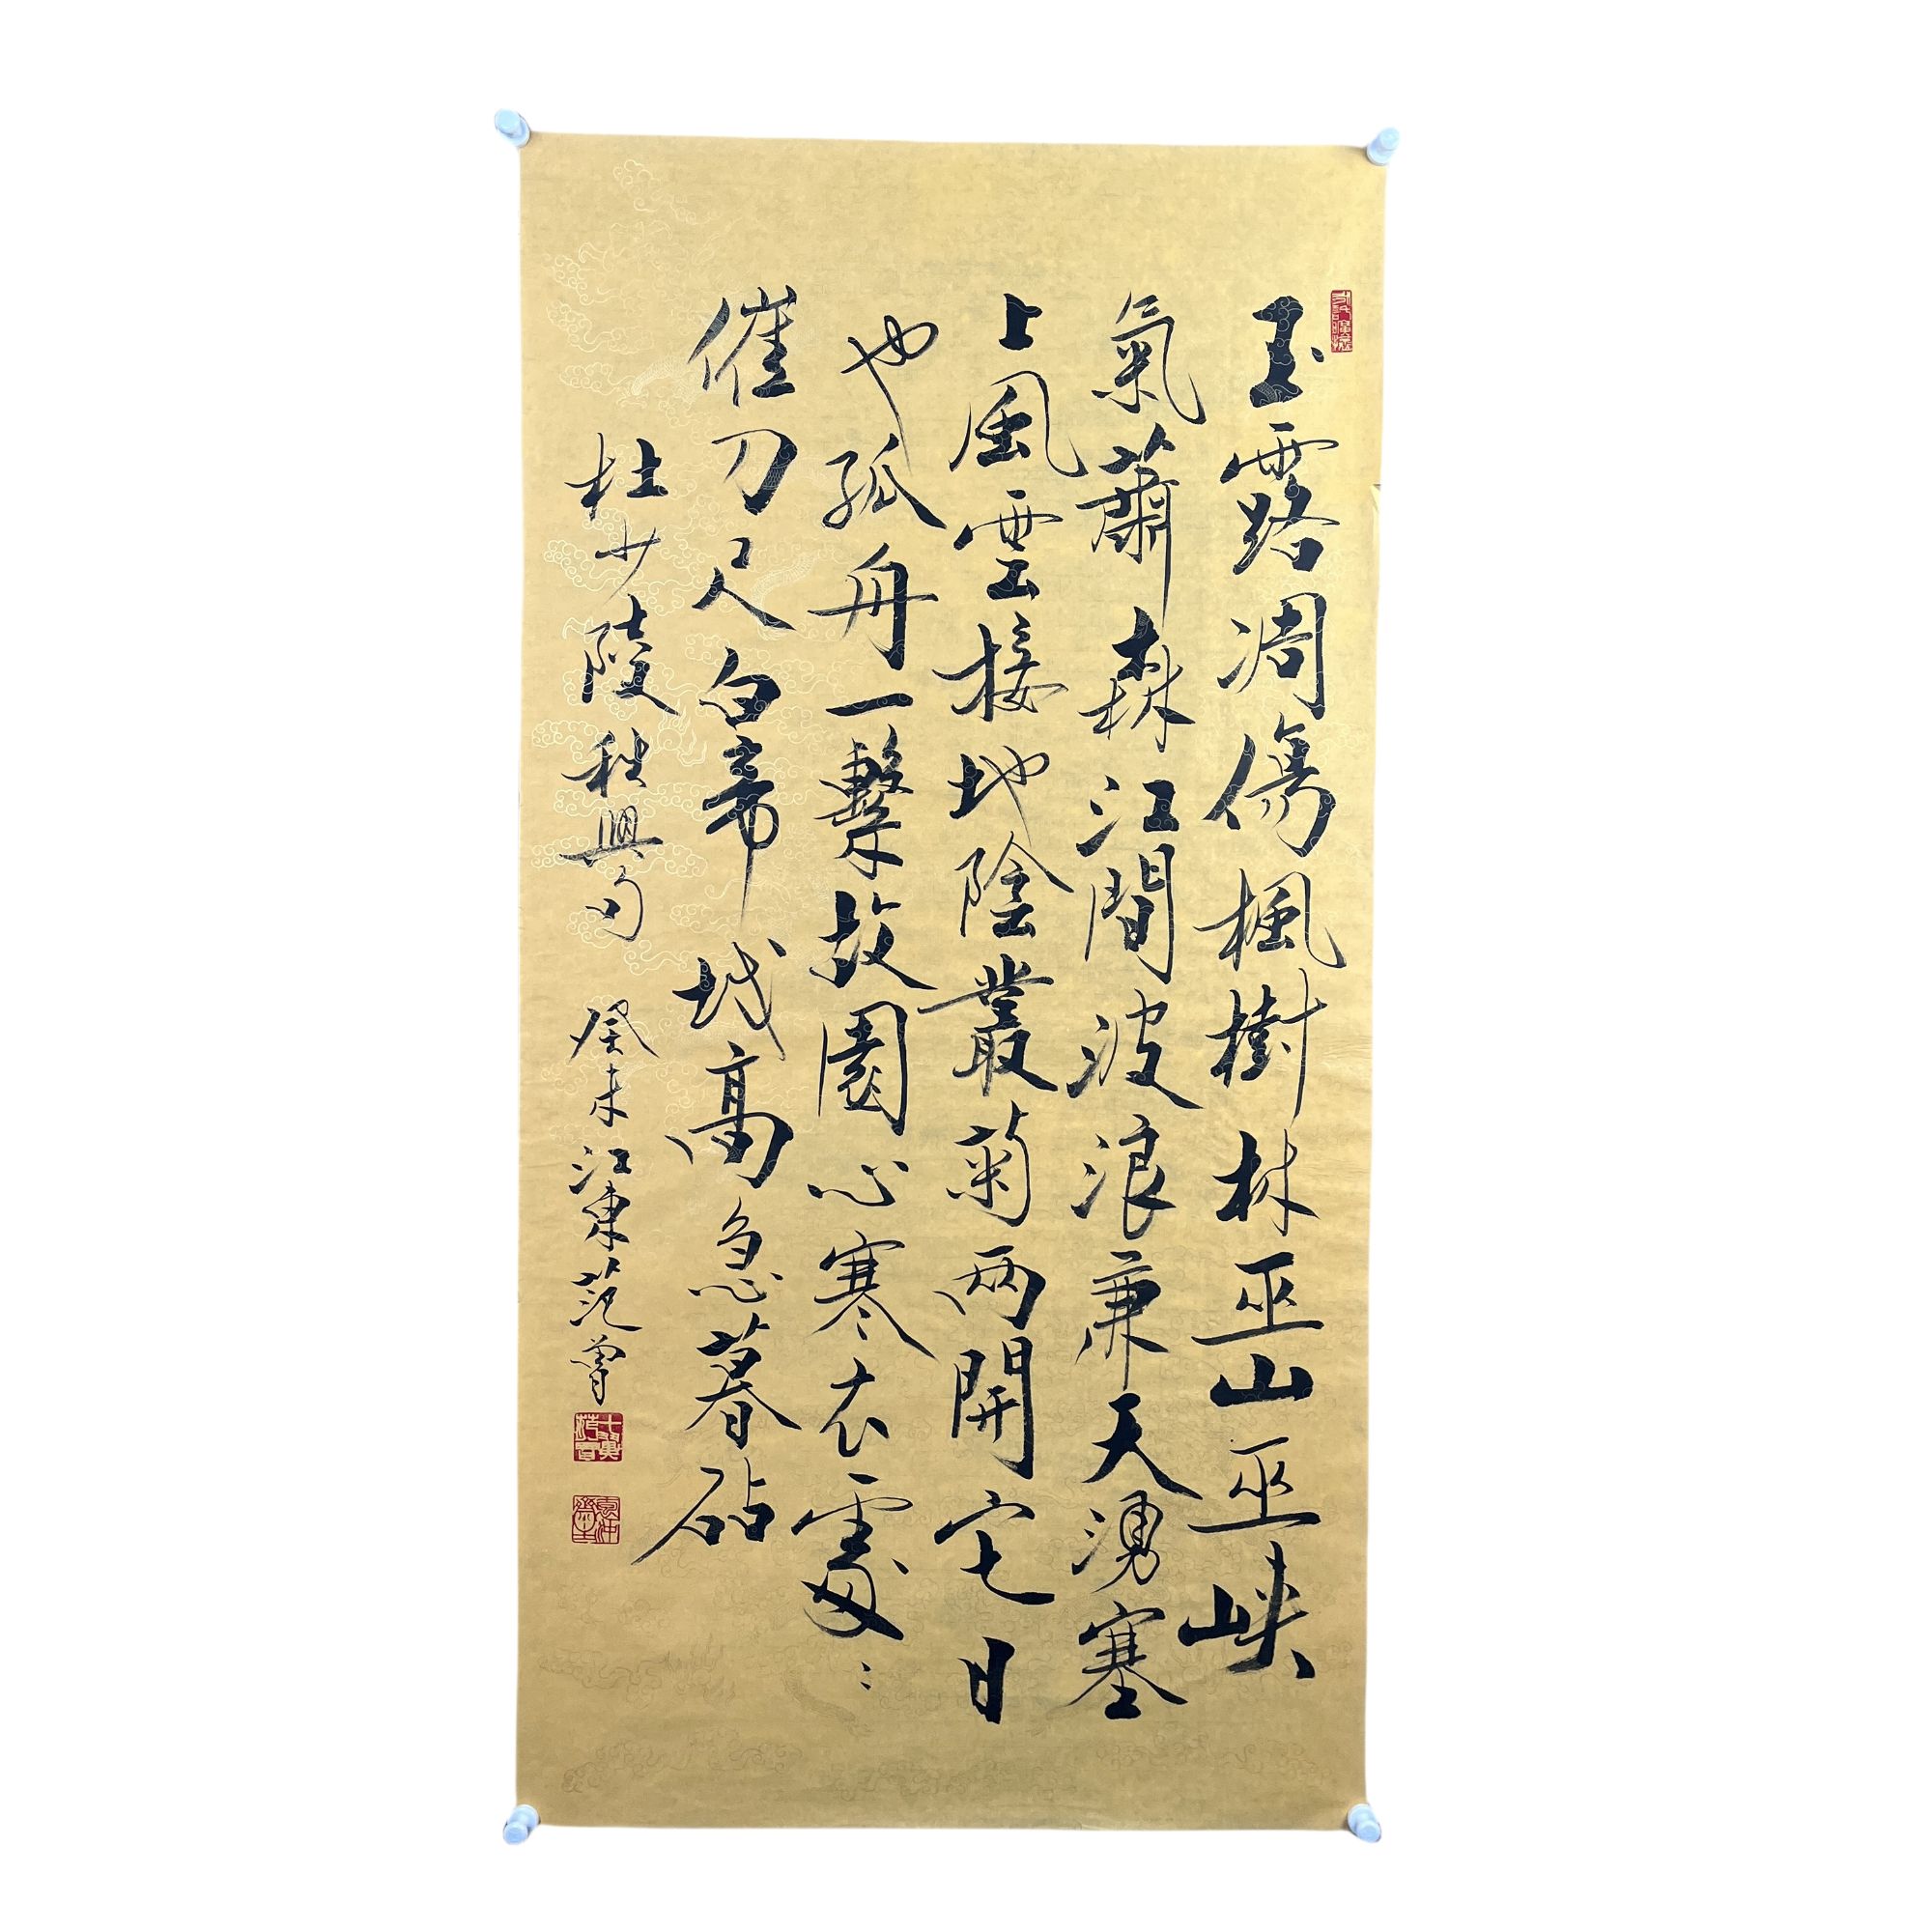 玉露凋傷楓樹林巫山巫峽
氣蕭森江間波浪兼天湧塞
上風雲接地陰叢菊兩開它日
也孤舟一繫故園心寒衣處〻
催刀尺白帝城高急暮砧
杜少陵秋興句 癸未江東范曾
十翼范曾